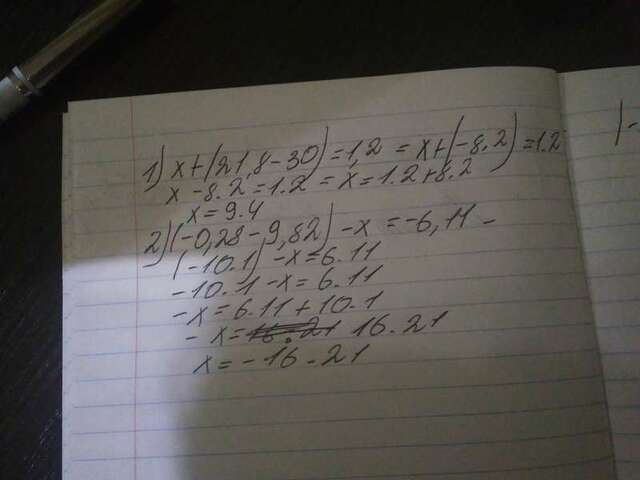 1) x+(21,8-30)=1,2 = x+(-8,2)=1.2
x-8.2=1.2 = x=1.2+8.2
x=9.4
2)(-0,28-9,82)-x=-6,11-
(-10.1)-x=6.11
-10.1-x=6.11
-x=6.11+10.1
-x=16.21 16.21
x=-16-21